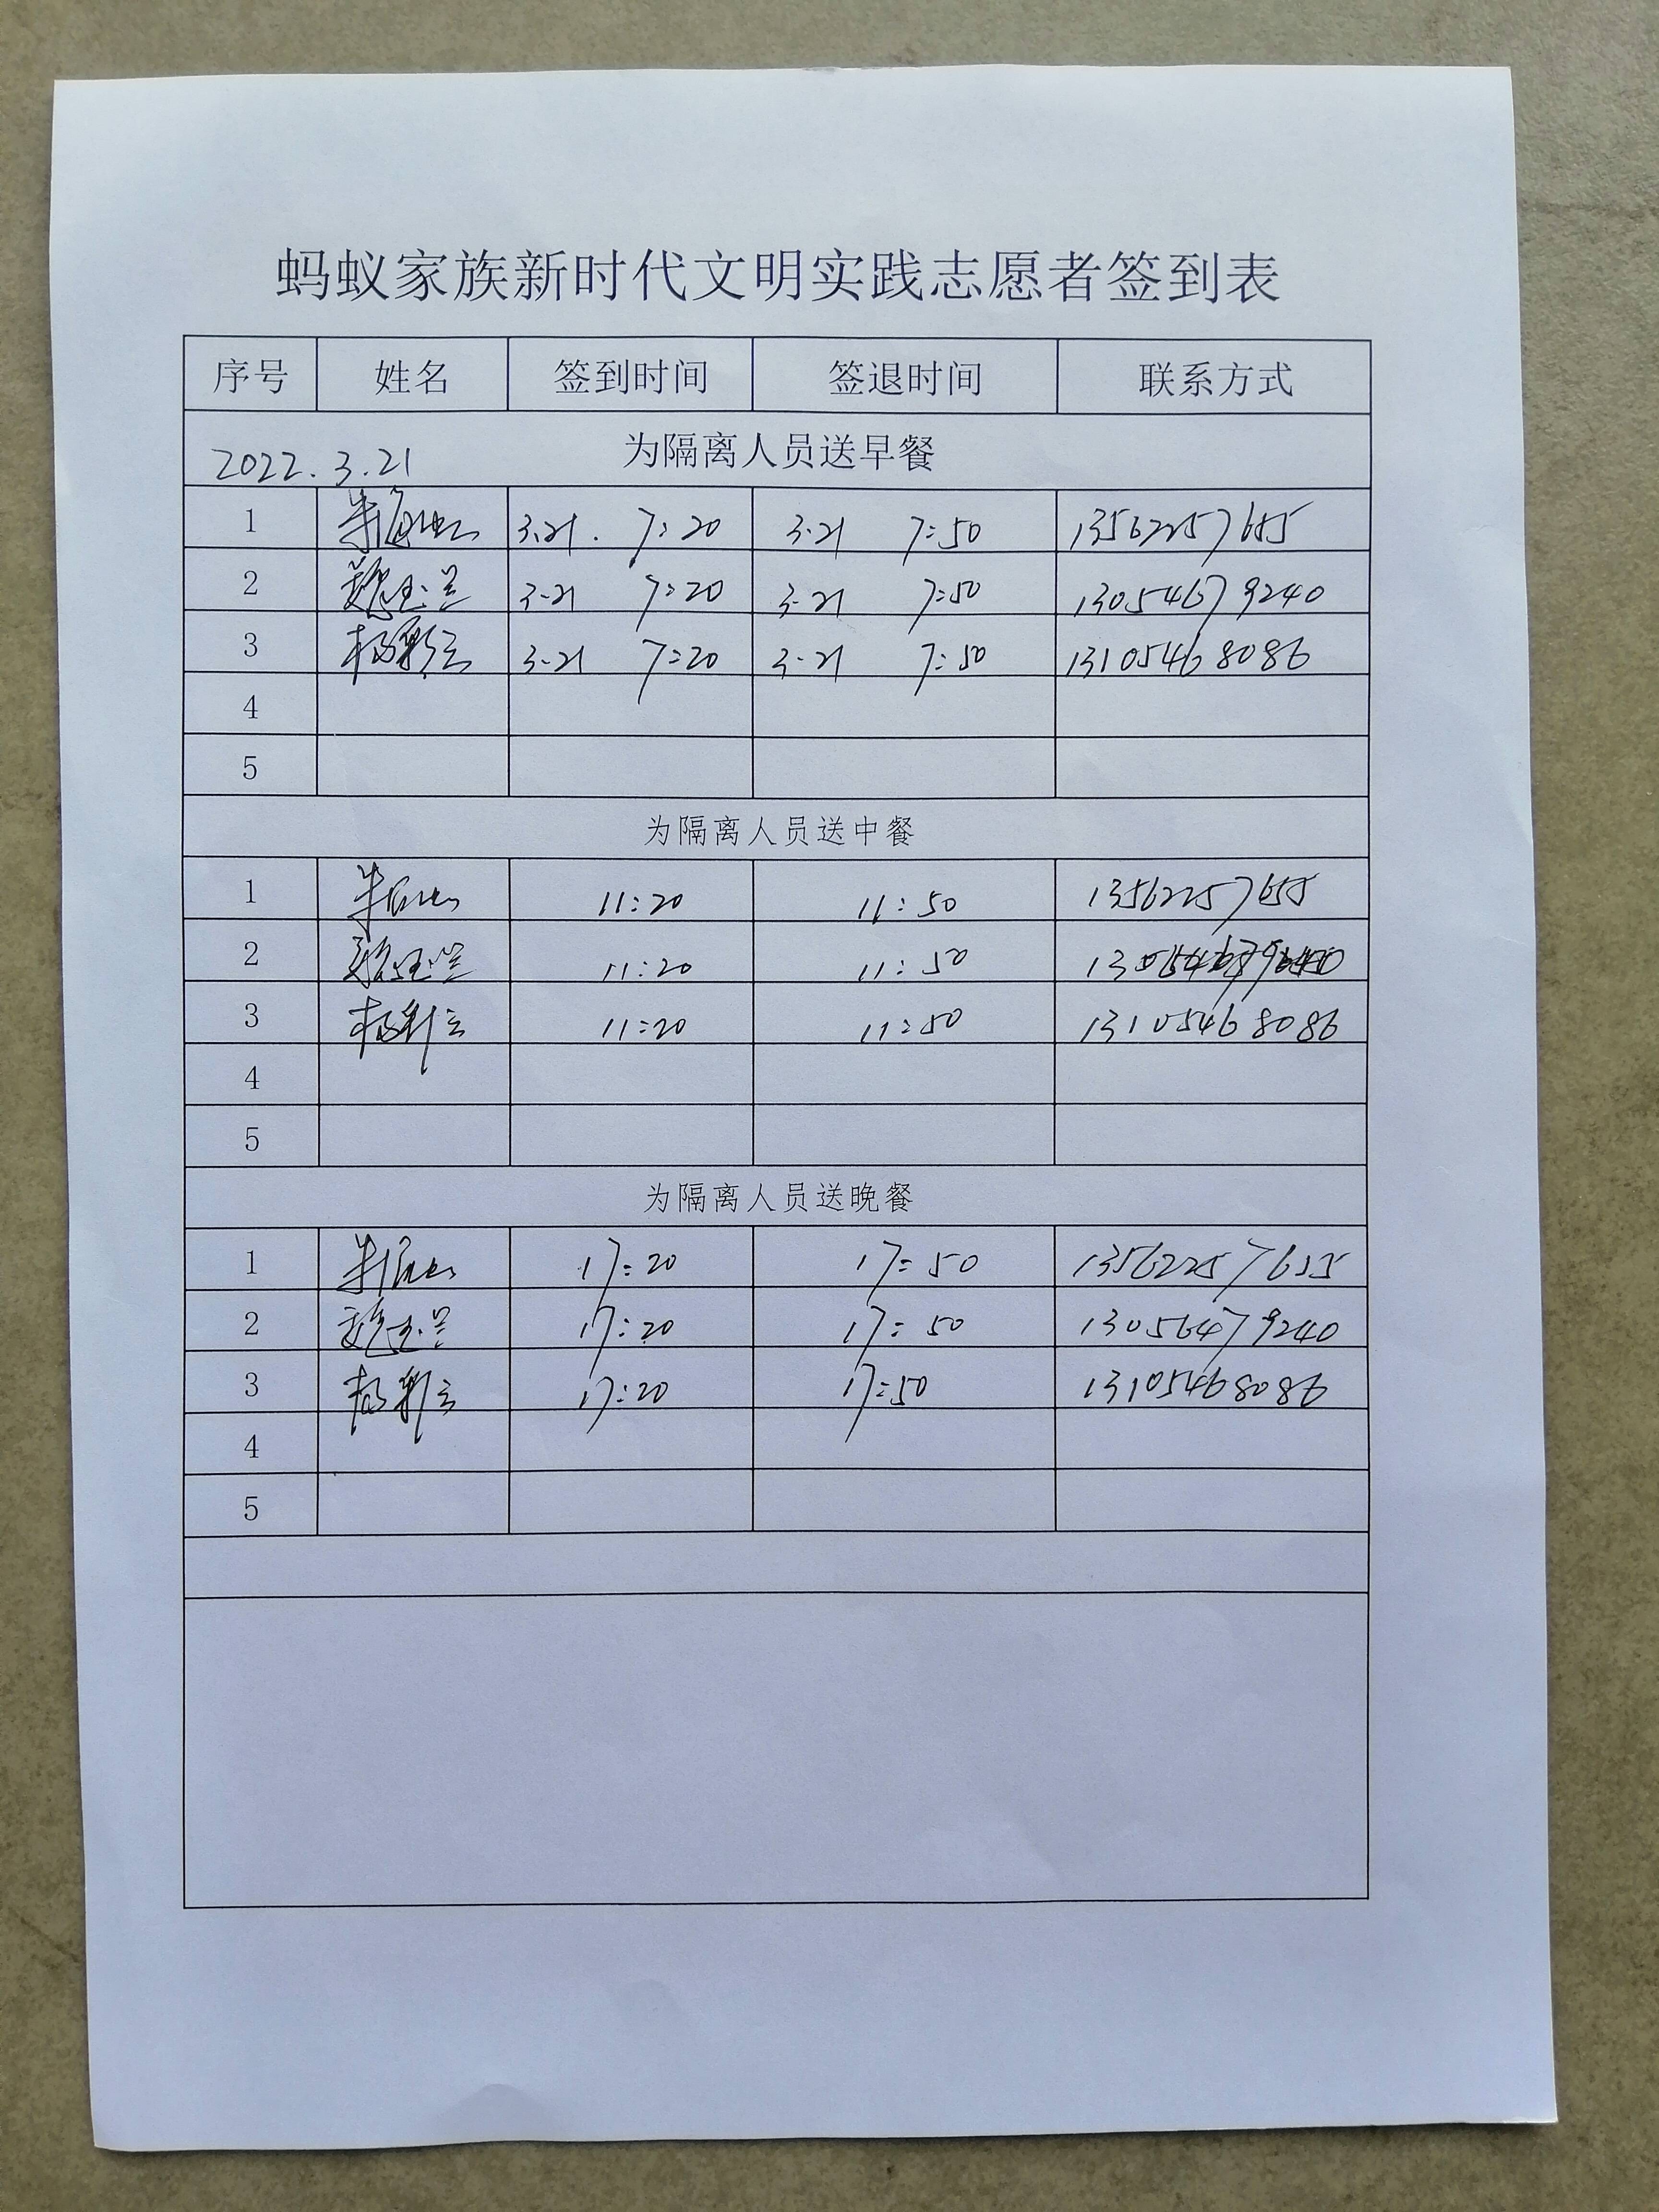 蚂蚁家族新时代文明实践志愿者签到表
序号 姓名 签到时间 签退时间 联系方式
2022.3.21 为隔离人员送早餐
1 3.21. 7:20 3.21 7:50 13562257655
2 魏玉兰 3-21 7:20 3-21 7:50 13054679240
3 杨彩云 3-21 7:20 3-21 7:50 13105468086
4
5
为隔离人员送中餐
1 11:20 11:50 13562257655
2 魏玉兰 11:20 11:50
3 杨彩云 11:20 11:50 13105468086
4
5
为隔离人员送晚餐
1 17:20 17:50 13562257655
2 魏玉兰 17:20 17:50 13056479240
3 杨彩云 17:20 17:50 13105468086
4
5